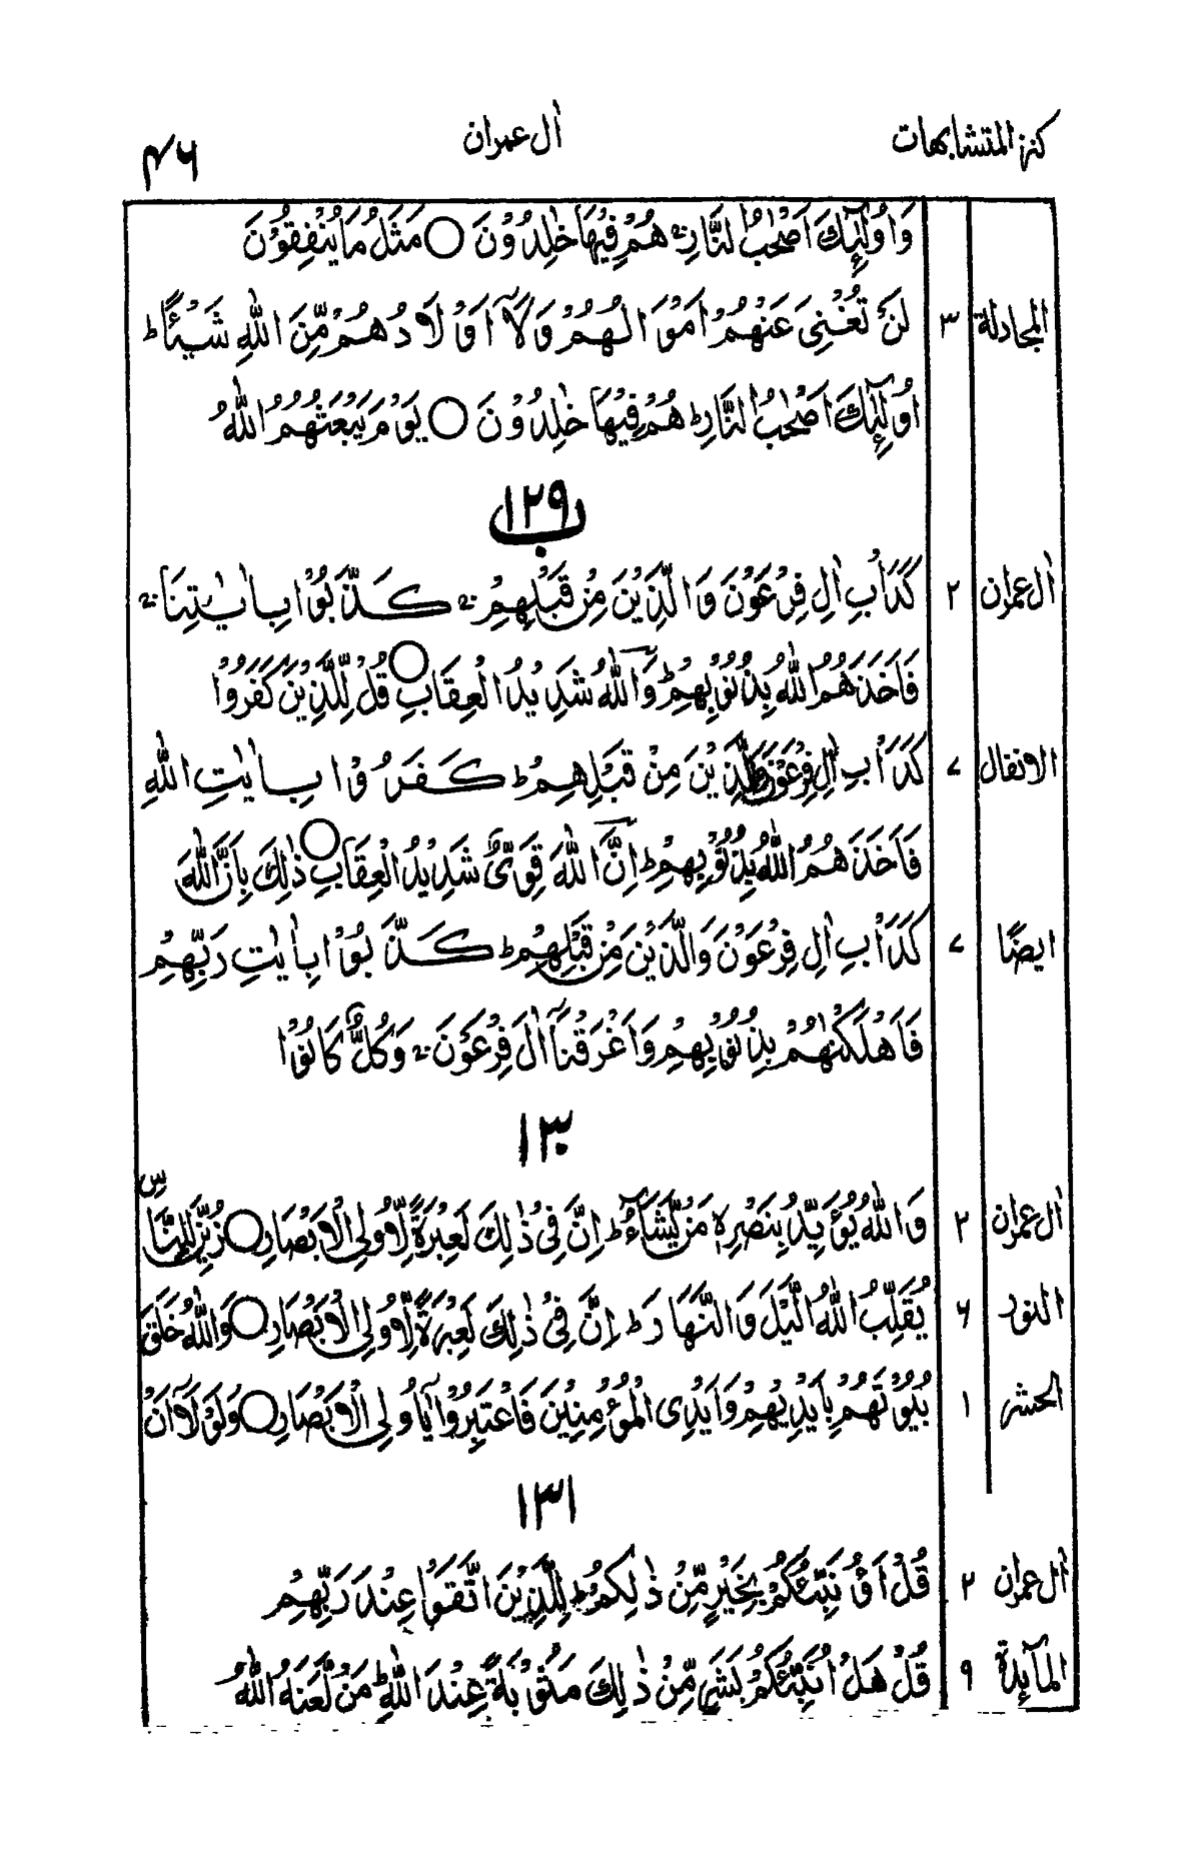 كنز المتشابهات اٰل عمران ۴۶
وَاُولٰٓئِكَ اَصْحٰبُ النَّارِ ۚ هُمْ فِيْهَا خٰلِدُوْنَ ○ مَثَلُ مَا يُنْفِقُوْنَ
المجادلة ۳ لَنْ تُغْنِىَ عَنْهُمْ اَمْوَالُهُمْ وَلَآ اَوْلَادُهُمْ مِّنَ اللّٰهِ شَيْـًٔا ؕ
اُولٰٓئِكَ اَصْحٰبُ النَّارِ ؕ هُمْ فِيْهَا خٰلِدُوْنَ ○ يَوْمَ يَبْعَثُهُمُ اللّٰهُ
۱۲۹
ب
اٰل عمران ۲ كَدَاْبِ اٰلِ فِرْعَوْنَ وَالَّذِيْنَ مِنْ قَبْلِهِمْ ۚ كَذَّبُوْا بِاٰيٰتِنَا ۚ
فَاَخَذَهُمُ اللّٰهُ بِذُنُوْبِهِمْ ؕ وَاللّٰهُ شَدِيْدُ الْعِقَابِ ○ قُلْ لِّلَّذِيْنَ كَفَرُوْا
الانفال ۷ كَدَاْبِ اٰلِ فِرْعَوْنَ وَالَّذِيْنَ مِنْ قَبْلِهِمْ ؕ كَفَرُوْا بِاٰيٰتِ اللّٰهِ
فَاَخَذَهُمُ اللّٰهُ بِذُنُوْبِهِمْ ؕ اِنَّ اللّٰهَ قَوِىٌّ شَدِيْدُ الْعِقَابِ ○ ذٰلِكَ بِاَنَّ اللّٰهَ
ايضًا ۷ كَدَاْبِ اٰلِ فِرْعَوْنَ وَالَّذِيْنَ مِنْ قَبْلِهِمْ ؕ كَذَّبُوْا بِاٰيٰتِ رَبِّهِمْ
فَاَهْلَكْنٰهُمْ بِذُنُوْبِهِمْ وَاَغْرَقْنَآ اٰلَ فِرْعَوْنَ ۚ وَكُلٌّ كَانُوْا
۱۳۰
اٰل عمران ۲ وَاللّٰهُ يُؤَيِّدُ بِنَصْرِهٖ مَنْ يَّشَآءُ ؕ اِنَّ فِىْ ذٰلِكَ لَعِبْرَةً لِّاُولِى الْاَبْصَارِ ○ زُيِّنَ لِلنَّاسِ
النور ۶ يُقَلِّبُ اللّٰهُ الَّيْلَ وَالنَّهَارَ ؕ اِنَّ فِىْ ذٰلِكَ لَعِبْرَةً لِّاُولِى الْاَبْصَارِ ○ وَاللّٰهُ خَلَقَ
الحشر ۱ بُيُوْتَهُمْ بِاَيْدِيْهِمْ وَاَيْدِى الْمُؤْمِنِيْنَ فَاعْتَبِرُوْا يٰٓاُولِى الْاَبْصَارِ ○ وَلَوْلَآ اَنْ
۱۳۱
اٰل عمران ۲ قُلْ اَؤُنَبِّئُكُمْ بِخَيْرٍ مِّنْ ذٰلِكُمْ ؕ لِلَّذِيْنَ اتَّقَوْا عِنْدَ رَبِّهِمْ
المآئدة ۹ قُلْ هَلْ اُنَبِّئُكُمْ بِشَرٍّ مِّنْ ذٰلِكَ مَثُوْبَةً عِنْدَ اللّٰهِ ؕ مَنْ لَّعَنَهُ اللّٰهُ